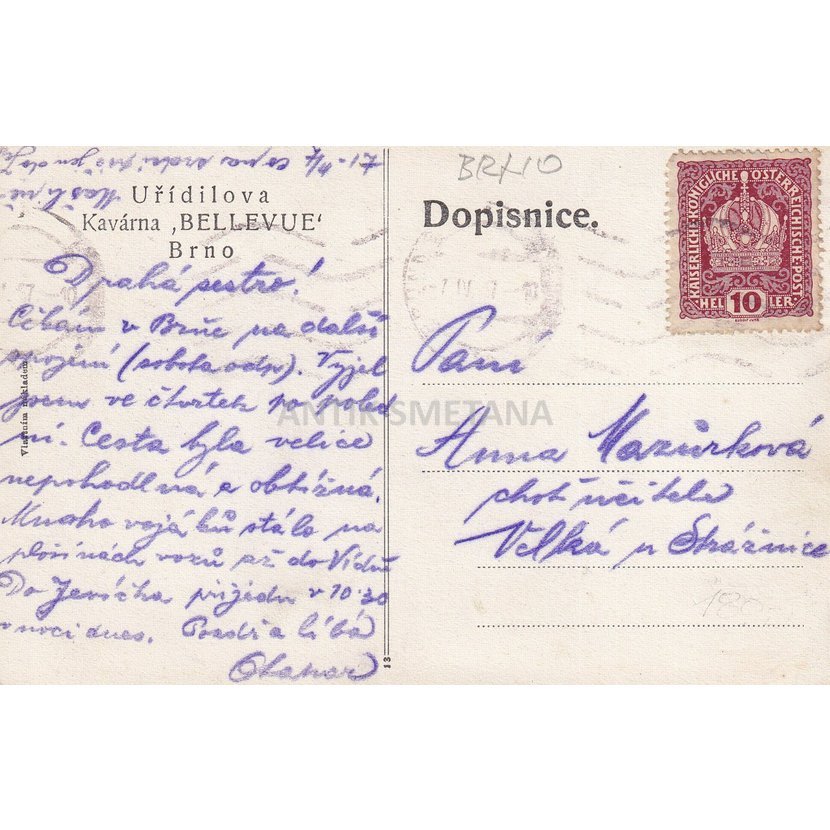 Uřídilova
Kavárna ‚BELLEVUE‘
Brno
Drahá sestro!
Čekám v Brně na další
spojení (sobota odp). Vyjel
jsem ve čtvrtek po poled
ní. Cesta byla velice
nepohodlná a obtížná.
Mnoho vojáků stálo na
plošinách vozů až do Vídně
Do Jevíčka přijedu v 10.30
v noci dnes. Pozdr. a líbá
Otakar
Vlastním nákladem
13
BRNO
Dopisnice.
KAISERLICHE KÖNIGLICHE ÖSTERREICHISCHE POST
HEL 10 LER
Paní
Anna Mazůrková
choť učitele
Velká u Strážnice
ANTIK SMETANA